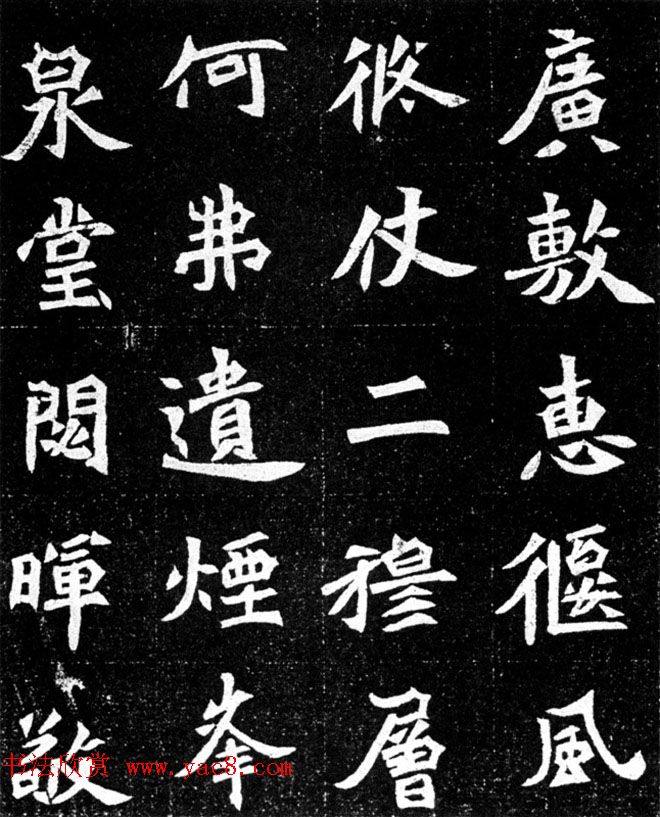 廣敷惠偃風
脩仗二穆層
何弗遺煙峯
泉堂暉敬
书法欣赏 www.yac8.com